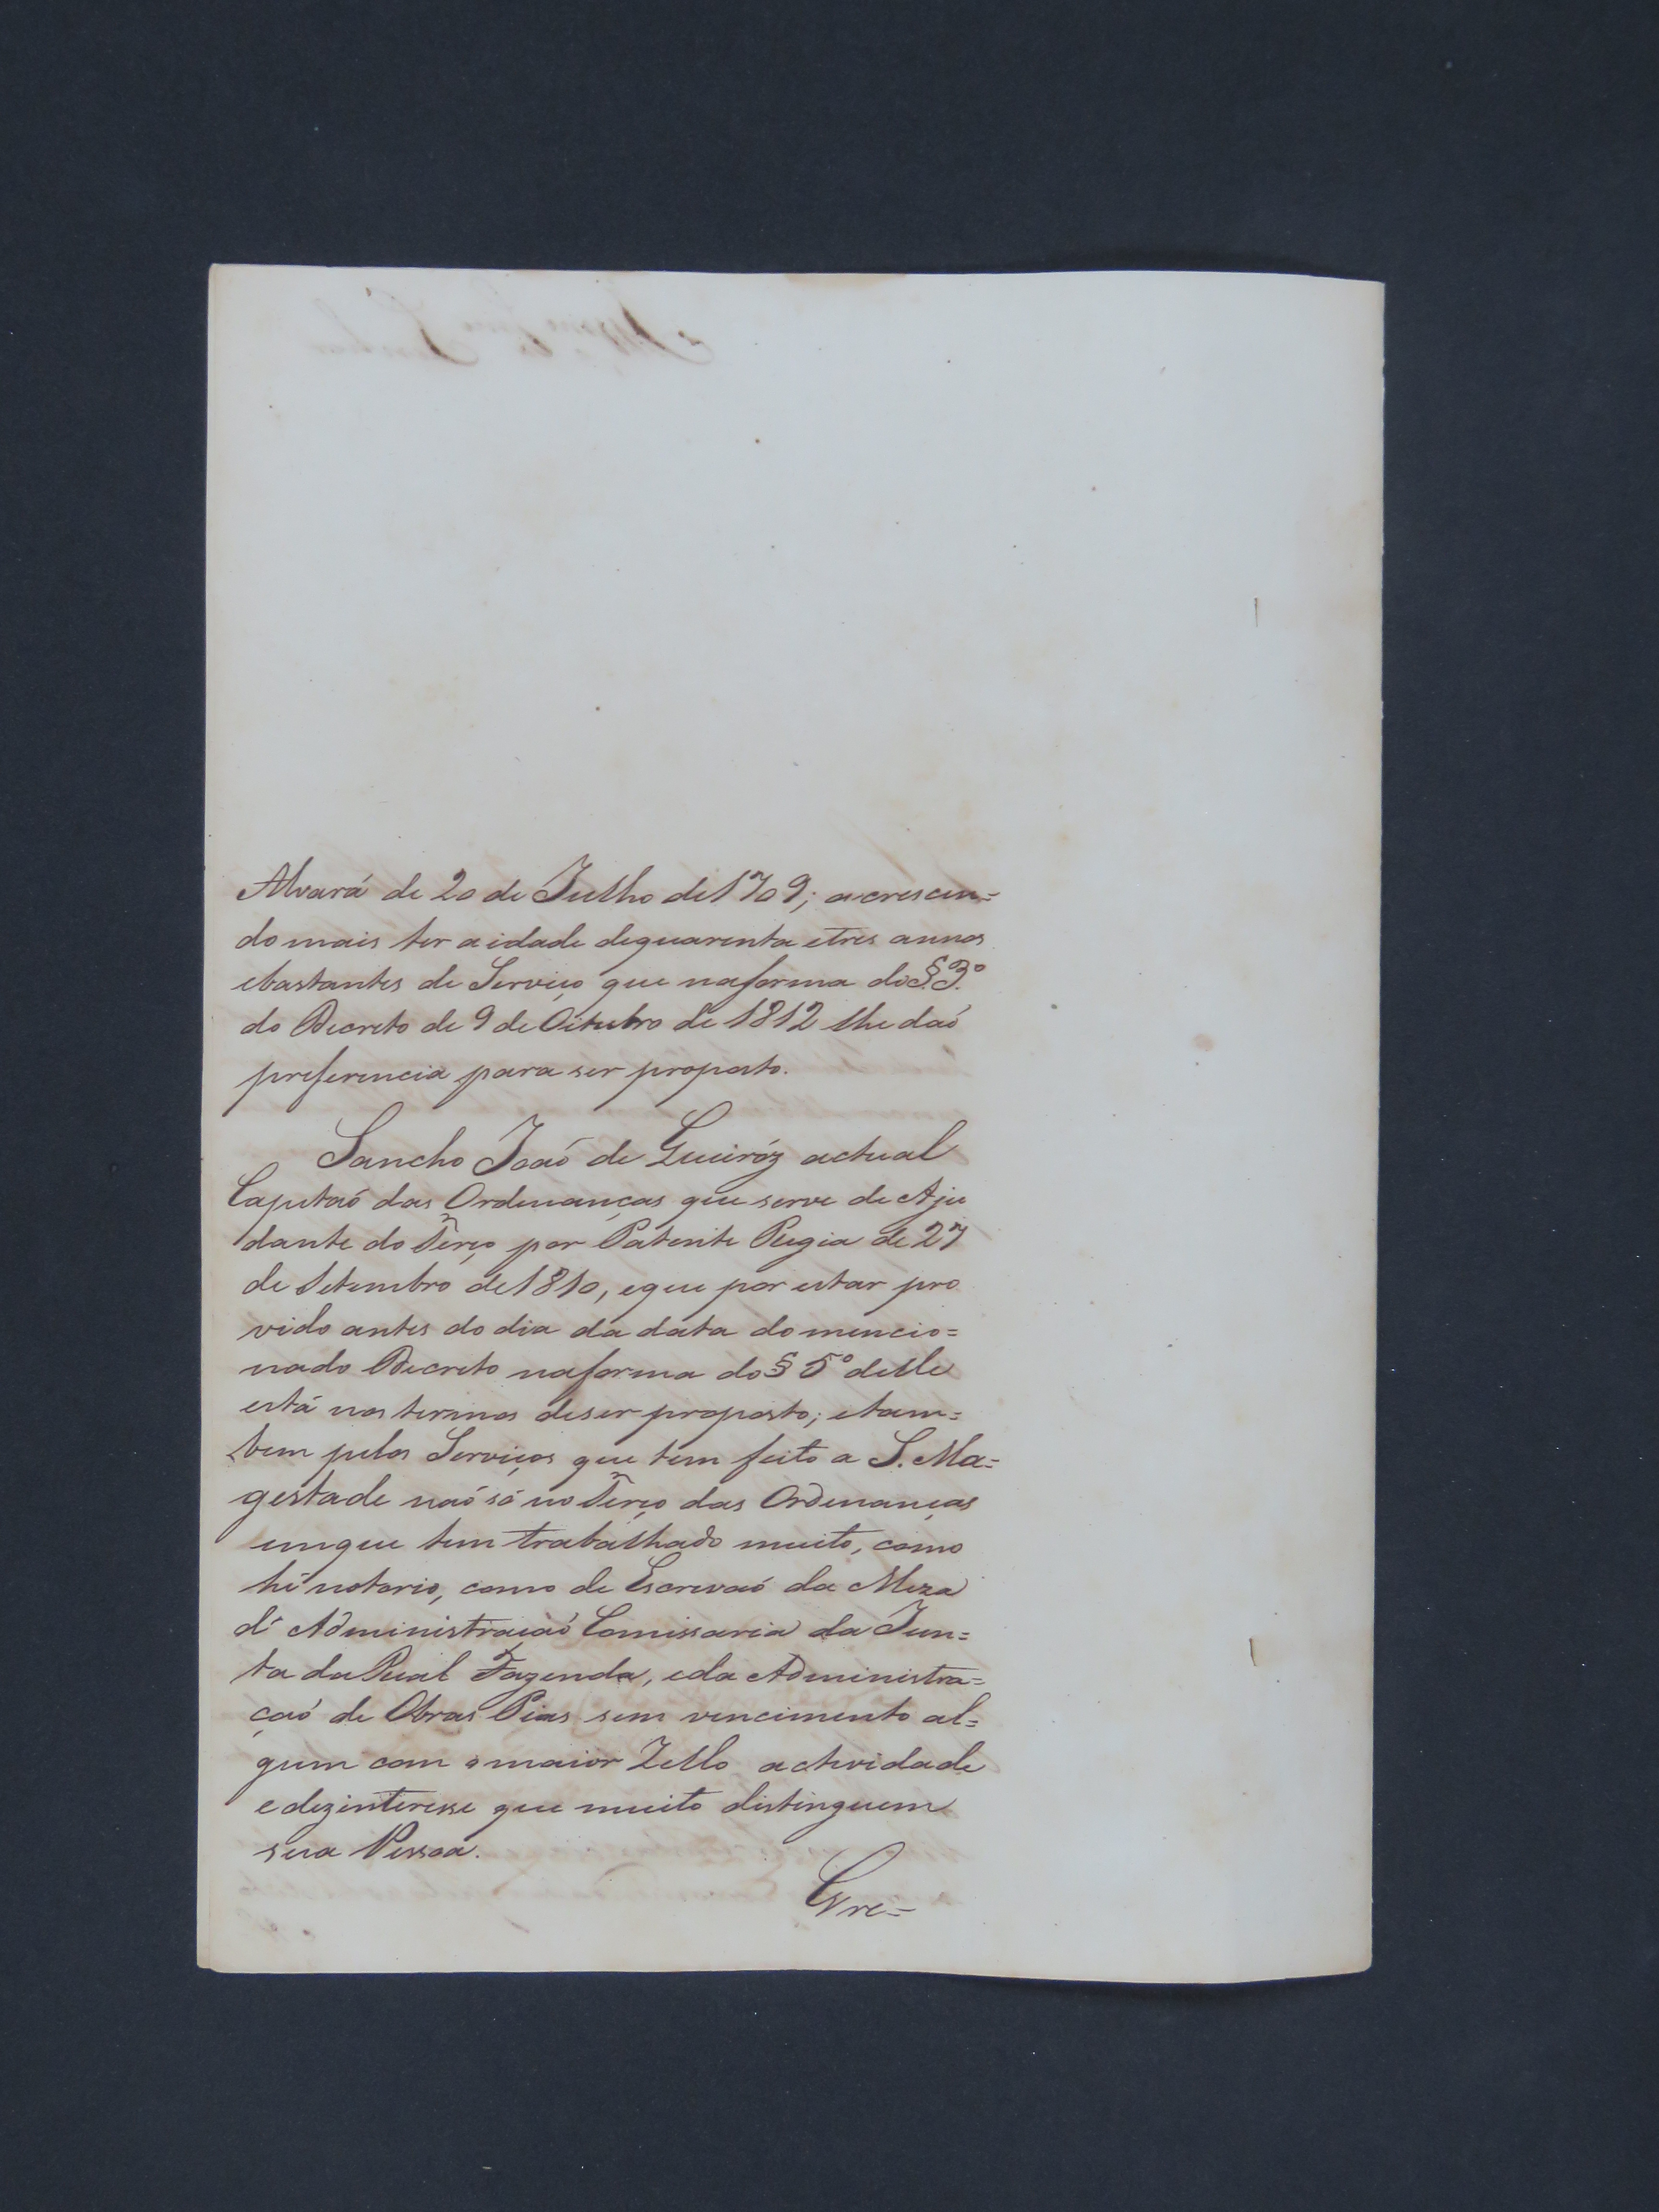 Alvará de 20 de Julho de 1709; acrescen=
do mais ter a idade dequarenta etres annos
ebastantes de Serviço que naforma do §. 3.º
do Decreto de 9 de Oitubro de 1812 lhe daó
preferencia para ser proposto.
Sancho Joaó de Queiróz actual
Capitaó das Ordenanças que serve de Aju
dante do Terço por Patente Regia de 27
de Setembro de 1810, eque por estar pro
vido antes do dia da data do mencio=
nado Decreto naforma do § 5º delle
está nos termos deser proposto; etam=
bem pelos Serviços que tem feito a S. Ma=
gestade naó só no Terço das Ordenanças
emque tem trabalhado muito, como
hé notorio, como de Escrevaó da Meza
d' Administraçaó Comissaria da Jun=
ta da Real Fazenda, eda Administra=
çaó de Obras Pias sem vencimento al=
gum com o maior Zello actividade
e dezinteresse que muito distinguem
sua Pessoa.
Gre=